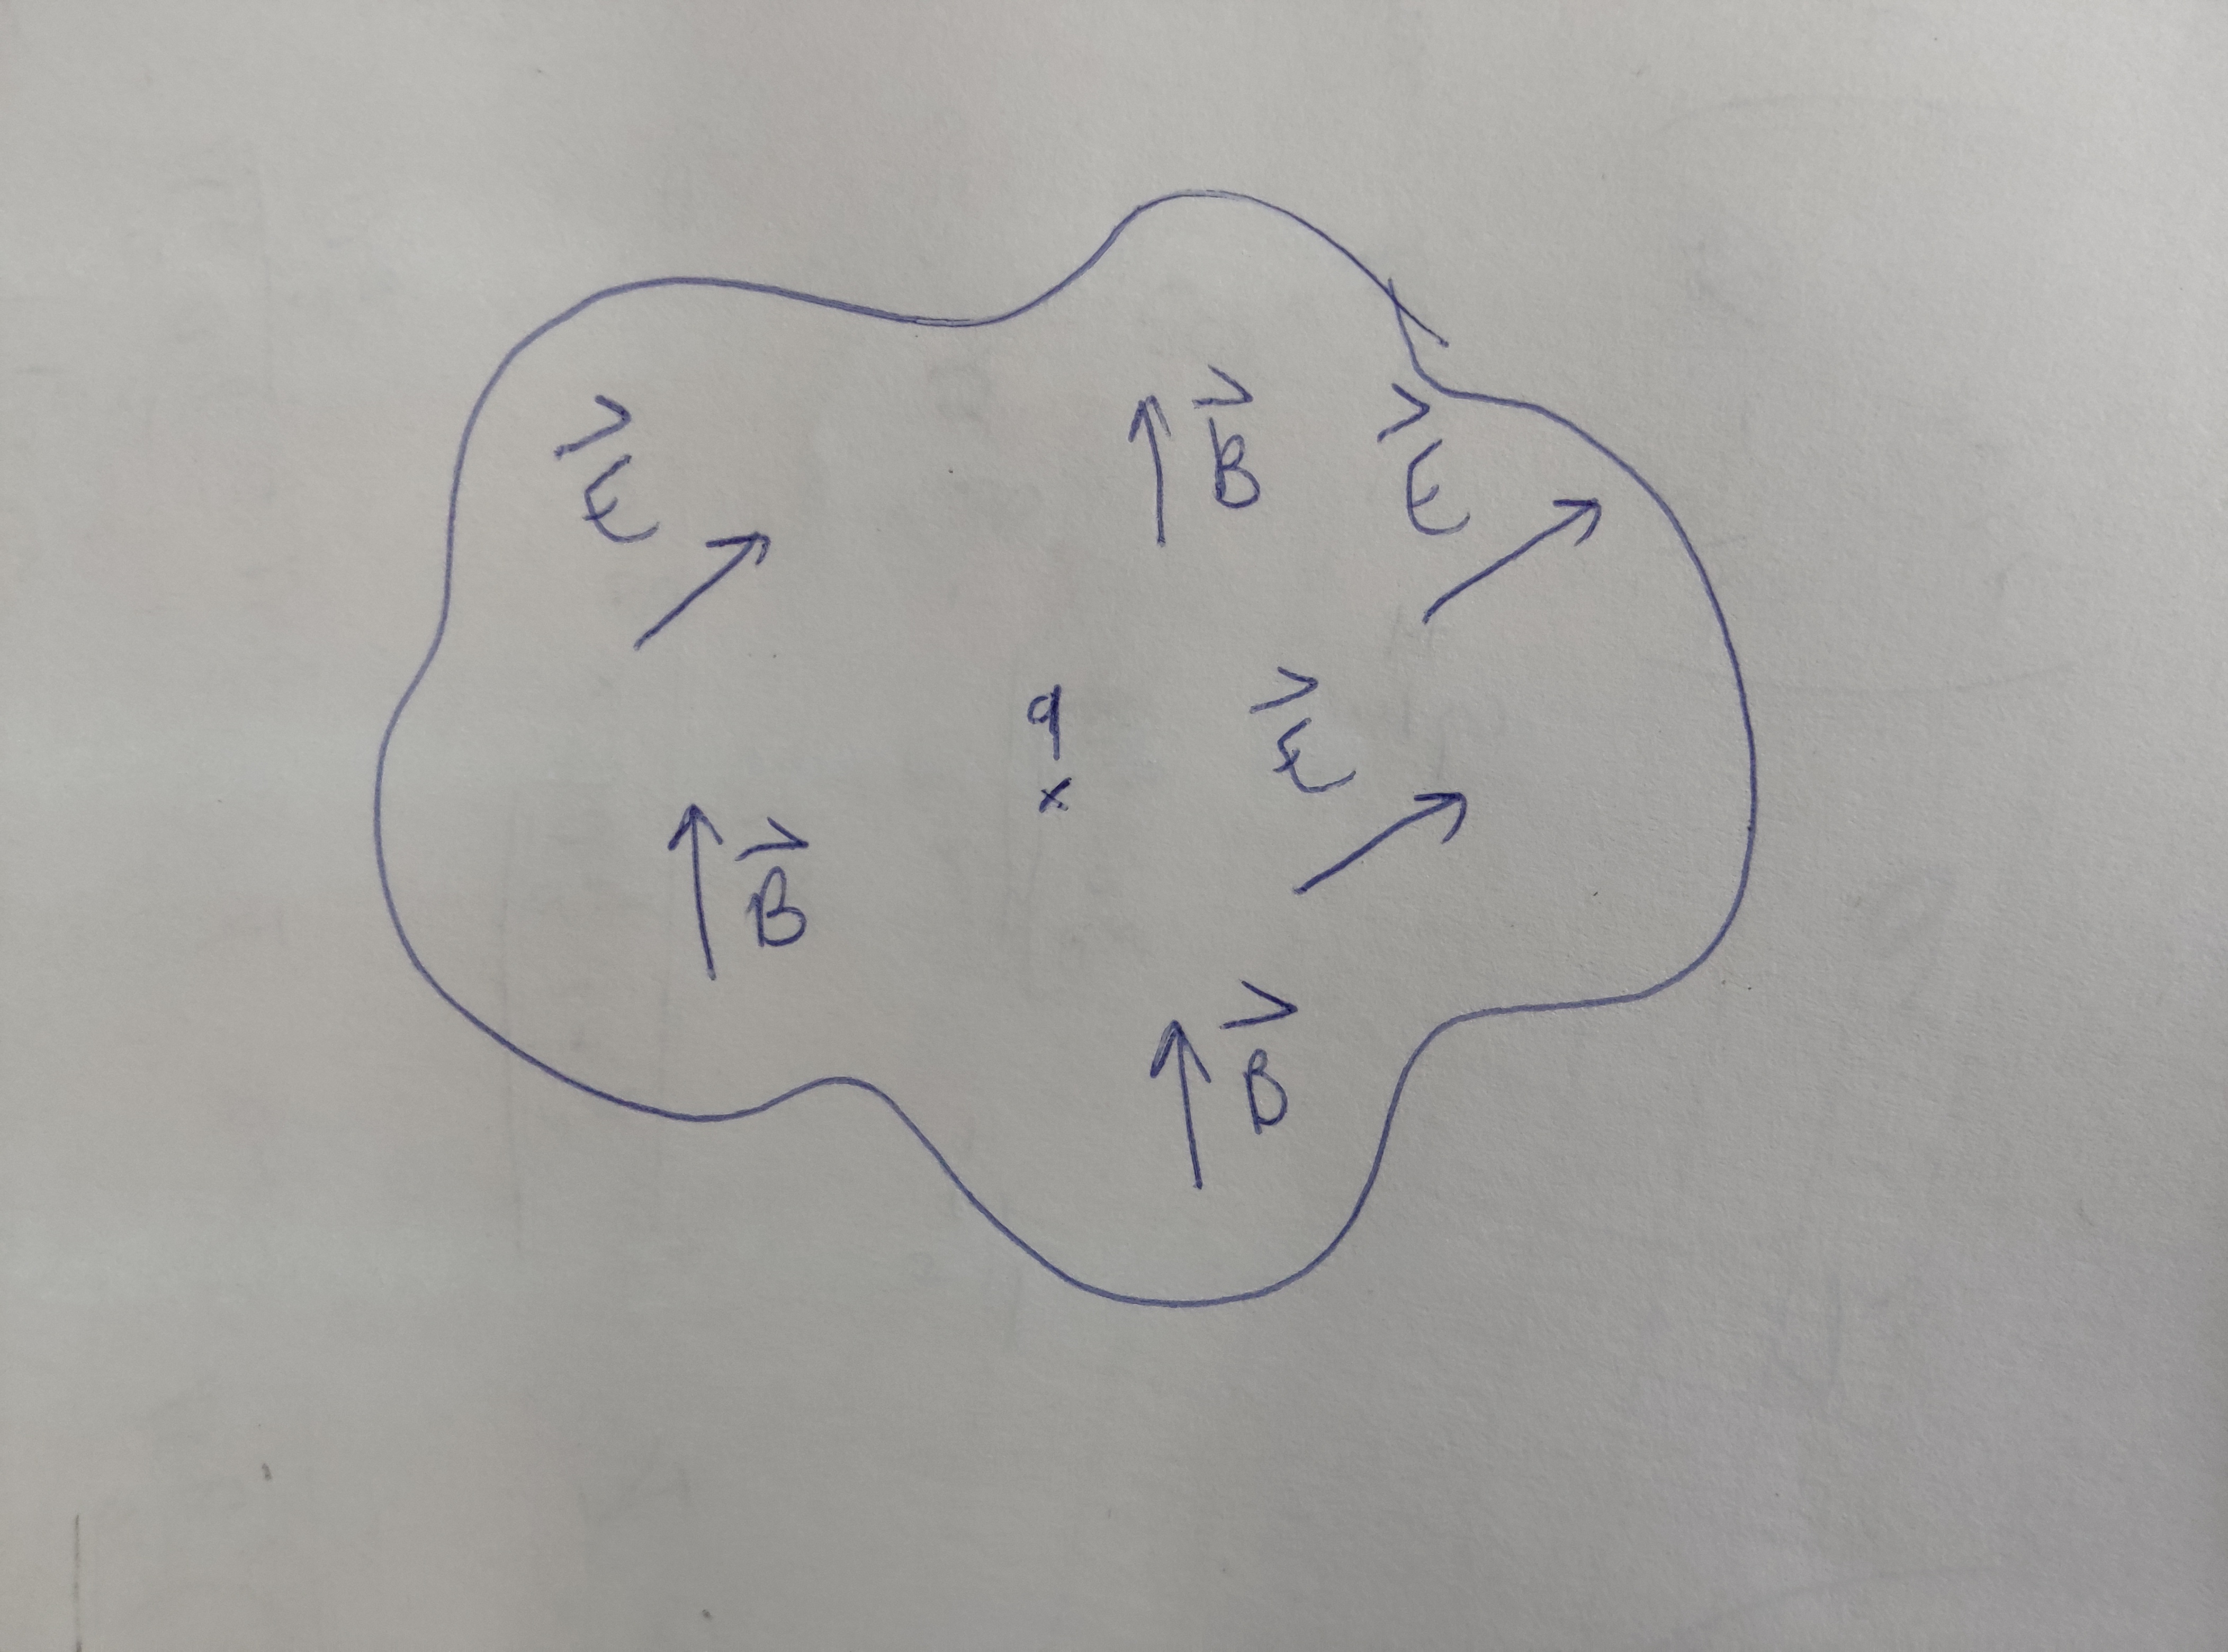 E⃗
B⃗
E⃗
q
E⃗
B⃗
B⃗